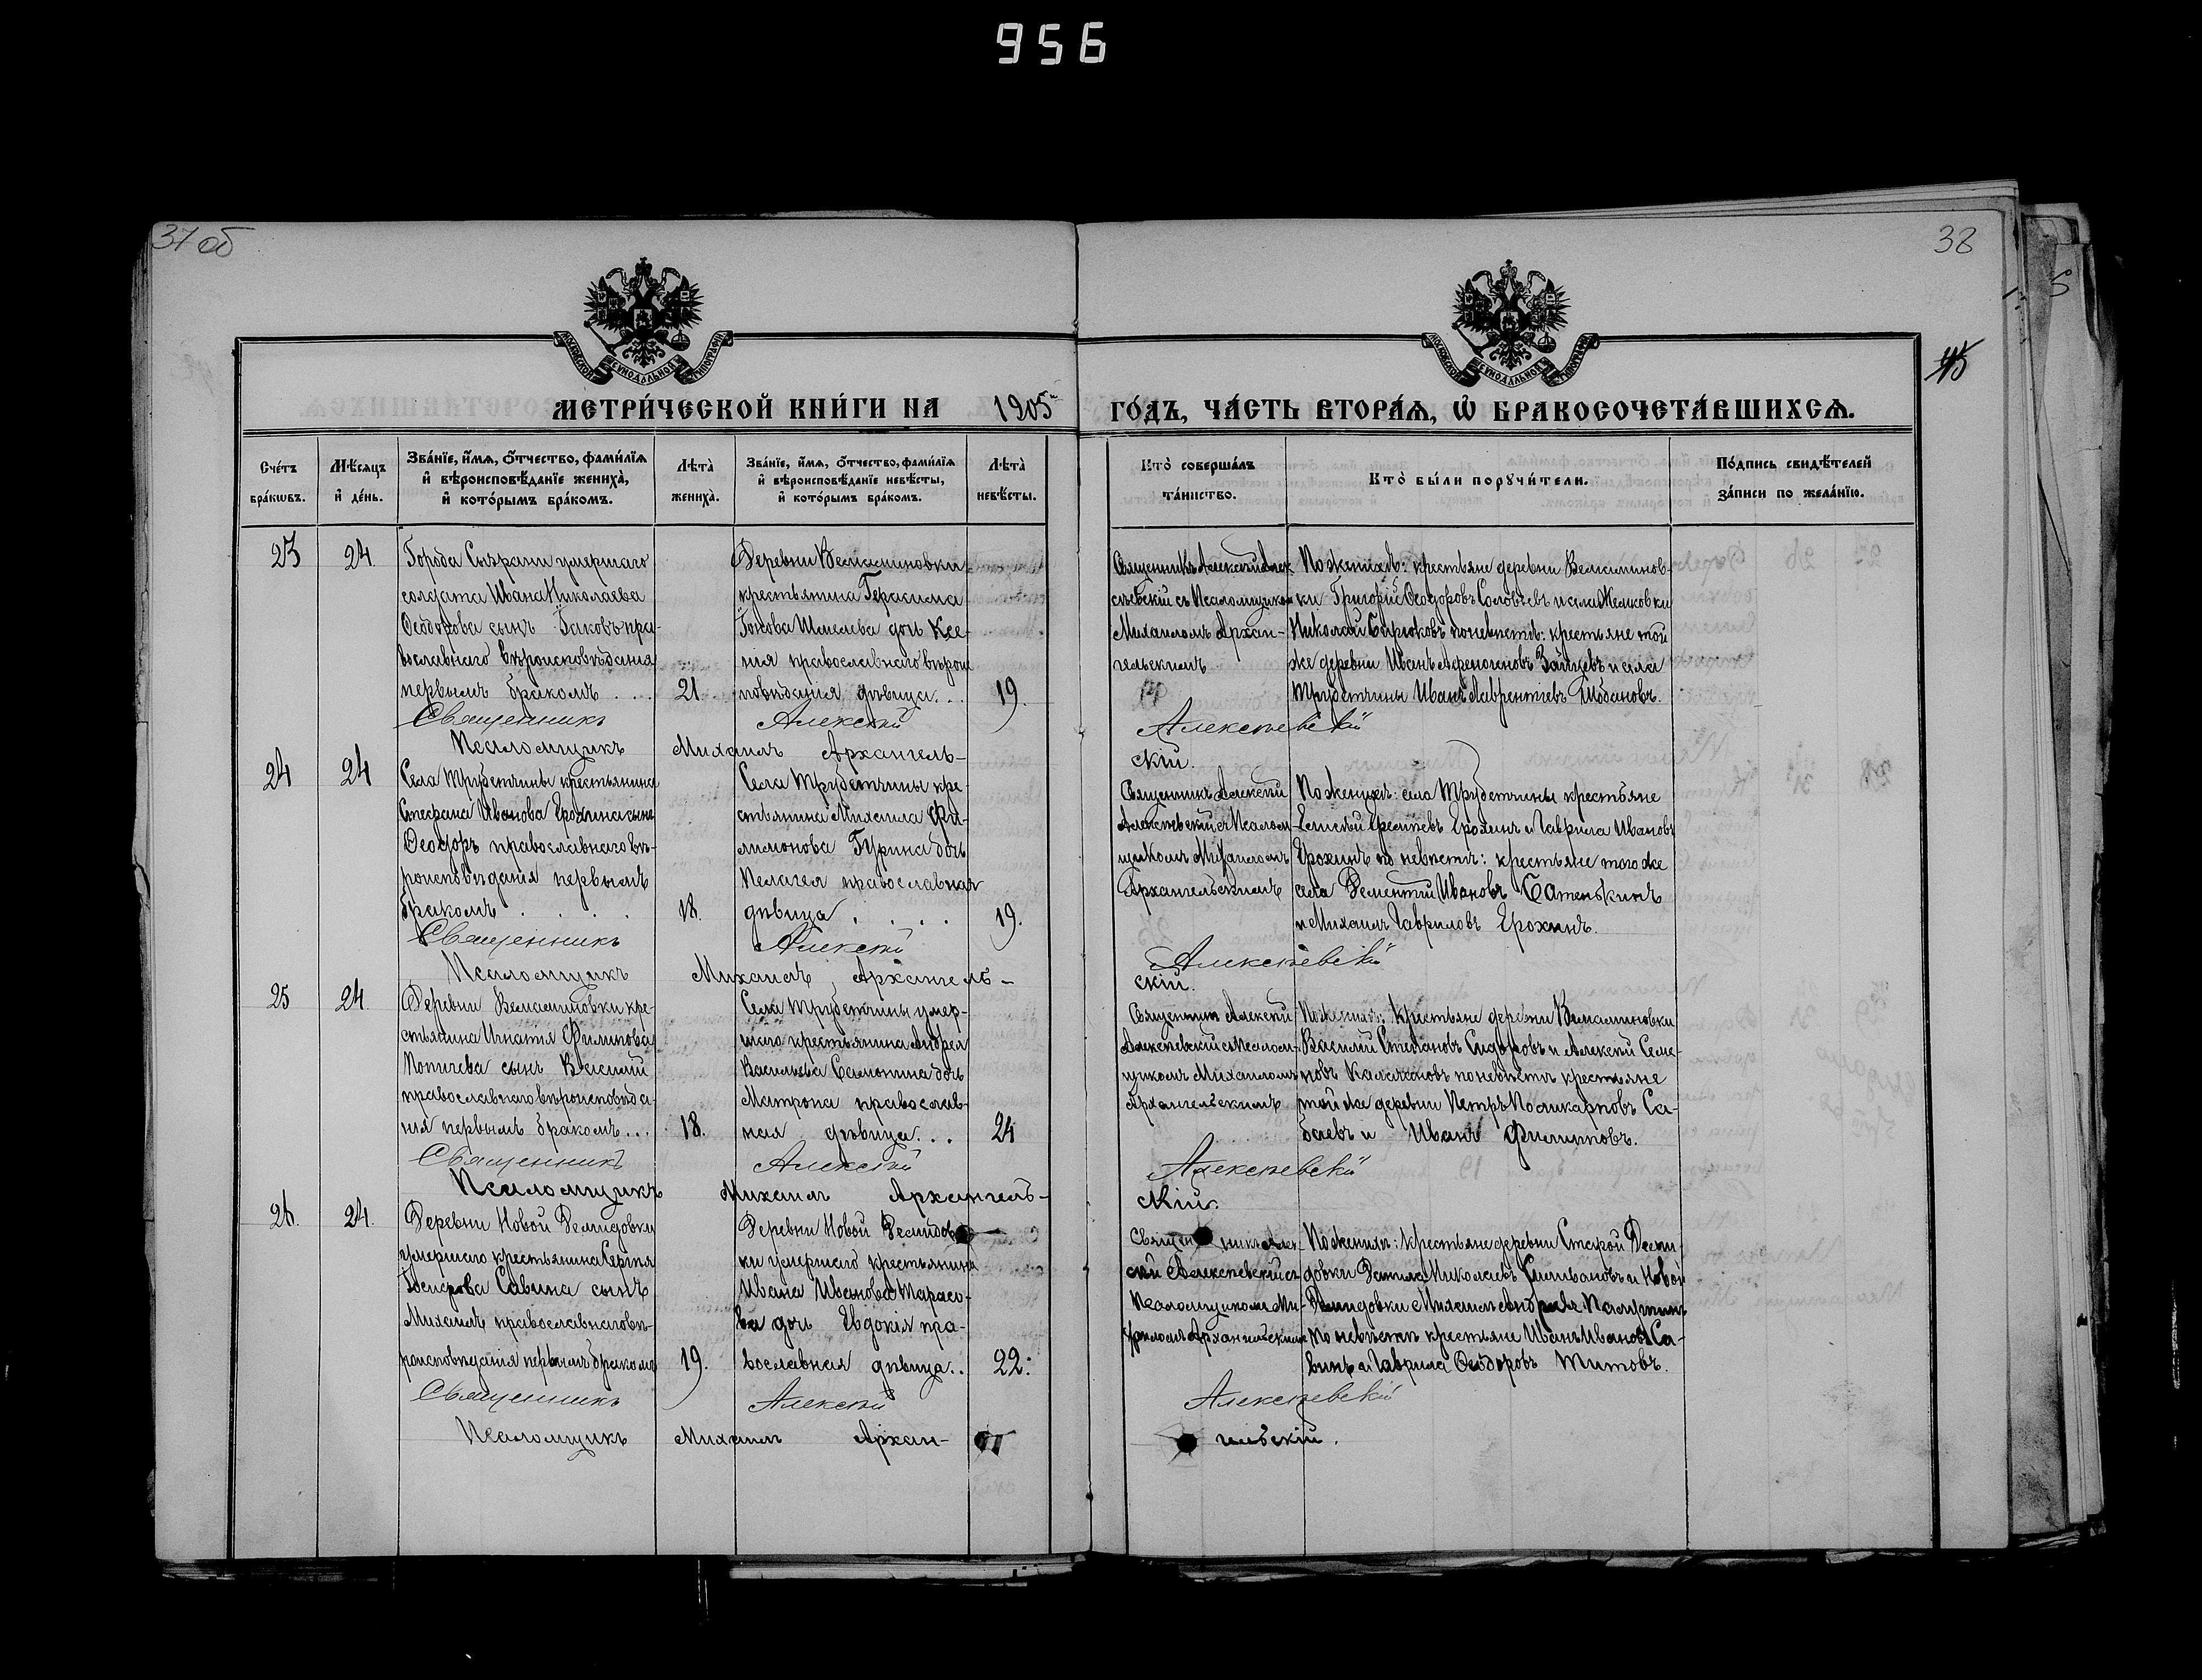 956
37 об
38
45
МОСКОВСКОЙ СѴНОДАЛЬНОЙ ТИПОГРАФІИ
МОСКОВСКОЙ СѴНОДАЛЬНОЙ ТИПОГРАФІИ
МЕТРИ́ЧЕСКОЙ КНИ́ГИ НА 1905 ГО́ДЪ, ЧА́СТЬ ВТОРА́Ѧ, Ѽ БРАКОСОЧЕТА́ВШИХСѦ.
Сче́тъ бра́кѡвъ.
Мѣ́сѧцъ и҆ де́нь.
Зва́нїе, и҆́мѧ, ѻ҆́тчество, фами́лїѧ и҆ вѣроисповѣ́данїе жениха̀, и҆ кото́рымъ бра́комъ.
Лѣта̀ жениха̀.
Зва́нїе, и҆́мѧ, ѻ҆́тчество, фами́лїѧ и҆ вѣроисповѣ́данїе невѣ́сты, и҆ кото́рымъ бра́комъ.
Лѣта̀ невѣ́сты.
Кто̀ соверша́лъ та́инство.
Кто̀ бы́ли порꙋчи́тели.
По́дпись свидѣ́телей за́писи по жела́нїю.
23
24.
Города Сызрани умершаго
солдата Ивана Николаева
Ѳеодорова сынъ Іаковъ пра-
вославнаго вѣроисповѣданія
первымъ бракомъ . . .
21.
Деревни Вельяминовки
крестьянина Герасима
дочь Ксе-
нія православнаго вѣроис
повѣданія дѣвица...
19.
Священникъ Алексѣй Алек
сѣевскій съ Псаломщикомъ
Михаиломъ Архан-
гельскимъ
По женихѣ: крестьяне деревни Вельяминов-
ки Григорій Ѳеодоровъ Соловьевъ и села
Николай Бирюковъ по невѣстѣ: крестьяне той
же деревни Иванъ Аѳеногеновъ Зайцевъ и села
Трубетчины Иванъ Лаврентіевъ Шобановъ.
Священникъ Алексѣй Алексѣевскій
Псаломщикъ Михаилъ Архангель-
скій.
24
24
Села Трубетчины крестьянина
Стефана Иванова Ерохина сынъ
Ѳеодоръ православнаго вѣ-
роисповѣданія первымъ
бракомъ . . . .
18.
Села Трубетчины кре-
стьянина Михаила Фи-
лимонова Гурина дочь
Пелагея православная
дѣвица . . . .
19.
Священникъ Алексѣй
Алексѣевскій съ Псалом-
щикомъ Михаиломъ
Архангельскимъ
По женихѣ: села Трубетчины крестьяне
Елисѣй Ерохинъ и Гаврила Ивановъ
Ерохинъ по невѣстѣ: крестьяне того же
села Дементій Ивановъ Батенькинъ
и Михаилъ Гавриловъ Ерохинъ.
Священникъ Алексѣй Алексѣевскій
Псаломщикъ Михаилъ Архангель-
скій.
25
24.
Деревни Вельяминовки кре-
стьянина Игнатія Филипова
сынъ Василій
православнаго вѣроисповѣда-
нія первымъ бракомъ...
18.
Села Трубетчины умер-
шаго крестьянина Андрея
Васильева Самохина дочь
Матрона православ-
ная дѣвица. . .
24
Священникъ Алексѣй
Алексѣевскій съ Псалом-
щикомъ Михаиломъ
Архангельскимъ
По женихѣ: Крестьяне деревни Вельяминовки
Василій Степановъ Сидоровъ и Алексѣй Семе-
новъ по невѣстѣ крестьяне
той же деревни Петръ Поликарповъ Са-
баевъ и Иванъ Филиповъ.
Священникъ Алексѣй Алексѣевскій
Псаломщикъ Михаилъ Архангель-
скій.
26.
24.
Деревни Новой Демидовки
умершаго крестьянина Сергѣя
Савина сынъ
Михаилъ православнаго вѣ-
роисповѣданія первымъ бракомъ
19.
Деревни Новой Демидов
ки умершаго крестьянина
Ивана Иванова Тарасо-
ва дочь Евдокія пра-
вославная дѣвица..
22.
Священникъ Алек-
сѣй Алексѣевскій съ
Псаломщикомъ Ми-
хаиломъ Архангельскимъ
По женихѣ: крестьяне деревни Старой Деми-
довки Данила Николаевъ Селивановъ и Новой
Демидовки Михаилъ Андреевъ
По невѣстѣ крестьяне Иванъ Ивановъ Са-
винъ и Гаврила Ѳеодоровъ Титовъ.
Священникъ Алексѣй Алексѣевскій
Псаломщикъ Михаилъ Архан-
гельскій.